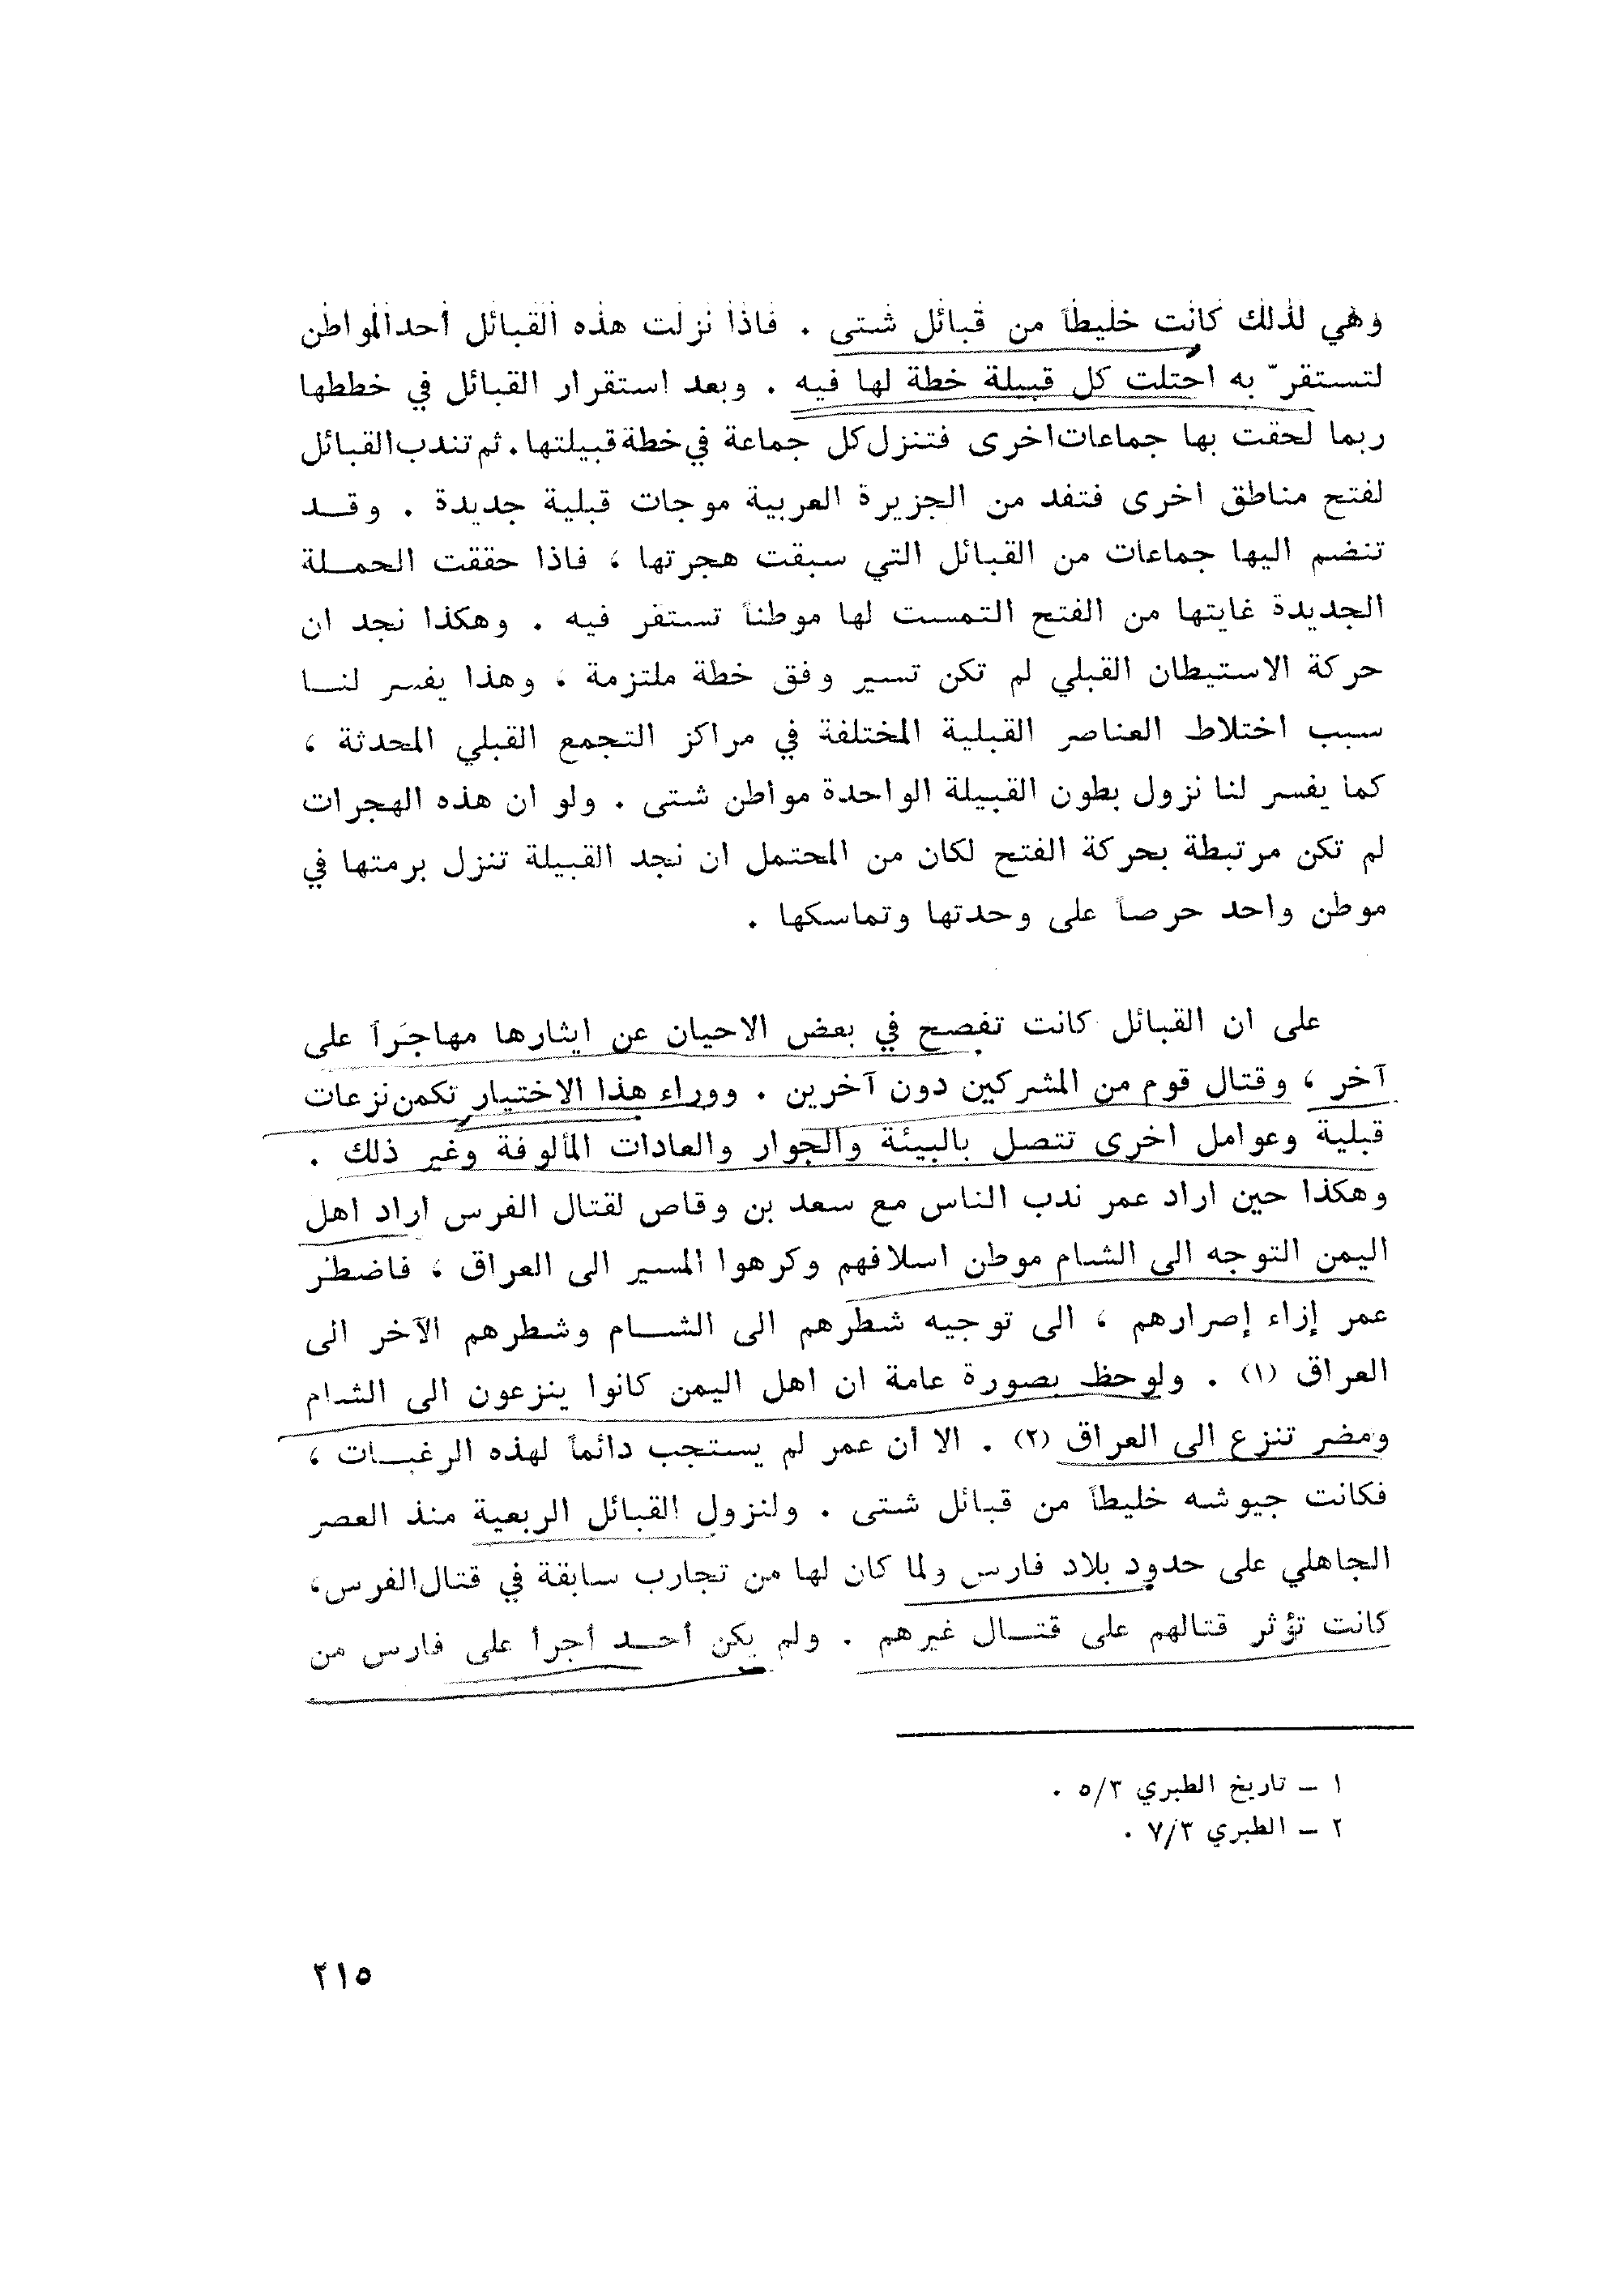 وهي لذلك كانت خليطاً من قبائل شتى . فاذا نزلت هذه القبائل أحدالمواطن
لتستقرّ به احتلت كل قبيلة خطة لها فيه . وبعد استقرار القبائل في خططها
ربما لحقت بها جماعات اخرى فتنزل كل جماعة في خطة قبيلتها . ثم تندب القبائل
لفتح مناطق اخرى فتفد من الجزيرة العربية موجات قبلية جديدة . وقــد
تنضم اليها جماعات من القبائل التي سبقت هجرتها ، فاذا حققت الحمـلة
الجديدة غايتها من الفتح التمست لها موطناً تستقر فيه . وهكذا نجد ان
حركة الاستيطان القبلي لم تكن تسير وفق خطة ملتزمة ، وهذا يفسر لنــا
سبب اختلاط العناصر القبلية المختلفة في مراكز التجمع القبلي المحدثة ،
كما يفسر لنا نزول بطون القبيلة الواحدة مواطن شتى . ولو ان هذه الهجرات
لم تكن مرتبطة بحركة الفتح لكان من المحتمل ان نجد القبيلة تنزل برمتها في
موطن واحد حرصاً على وحدتها وتماسكها .
على ان القبائل كانت تفصح في بعض الاحيان عن ايثارها مهاجَراً على
آخر ، وقتال قوم من المشركين دون آخرين . ووراء هذا الاختيار تكمن نزعات
قبلية وعوامل اخرى تتصل بالبيئة والجوار والعادات المألوفة وغير ذلك .
وهكذا حين اراد عمر ندب الناس مع سعد بن وقاص لقتال الفرس اراد اهل
اليمن التوجه الى الشام موطن اسلافهم وكرهوا المسير الى العراق ، فاضطر
عمر إزاء إصرارهم ، الى توجيه شطرهم الى الشــام وشطرهم الآخر الى
العراق (١) . ولوحظ بصورة عامة ان اهل اليمن كانوا ينزعون الى الشام
ومضر تنزع الى العراق (٢) . الا أن عمر لم يستجب دائماً لهذه الرغبــات ،
فكانت جيوشه خليطاً من قبائل شتى . ولنزول القبائل الربعية منذ العصر
الجاهلي على حدود بلاد فارس ولما كان لها من تجارب سابقة في قتال الفرس ،
كانت تؤثر قتالهم على قتــال غيرهم . ولم يكن أحــد أجرأ على فارس من
١ ــ تاريخ الطبري ٥/٣ .
٢ ــ الطبري ٧/٣ .
٢١٥